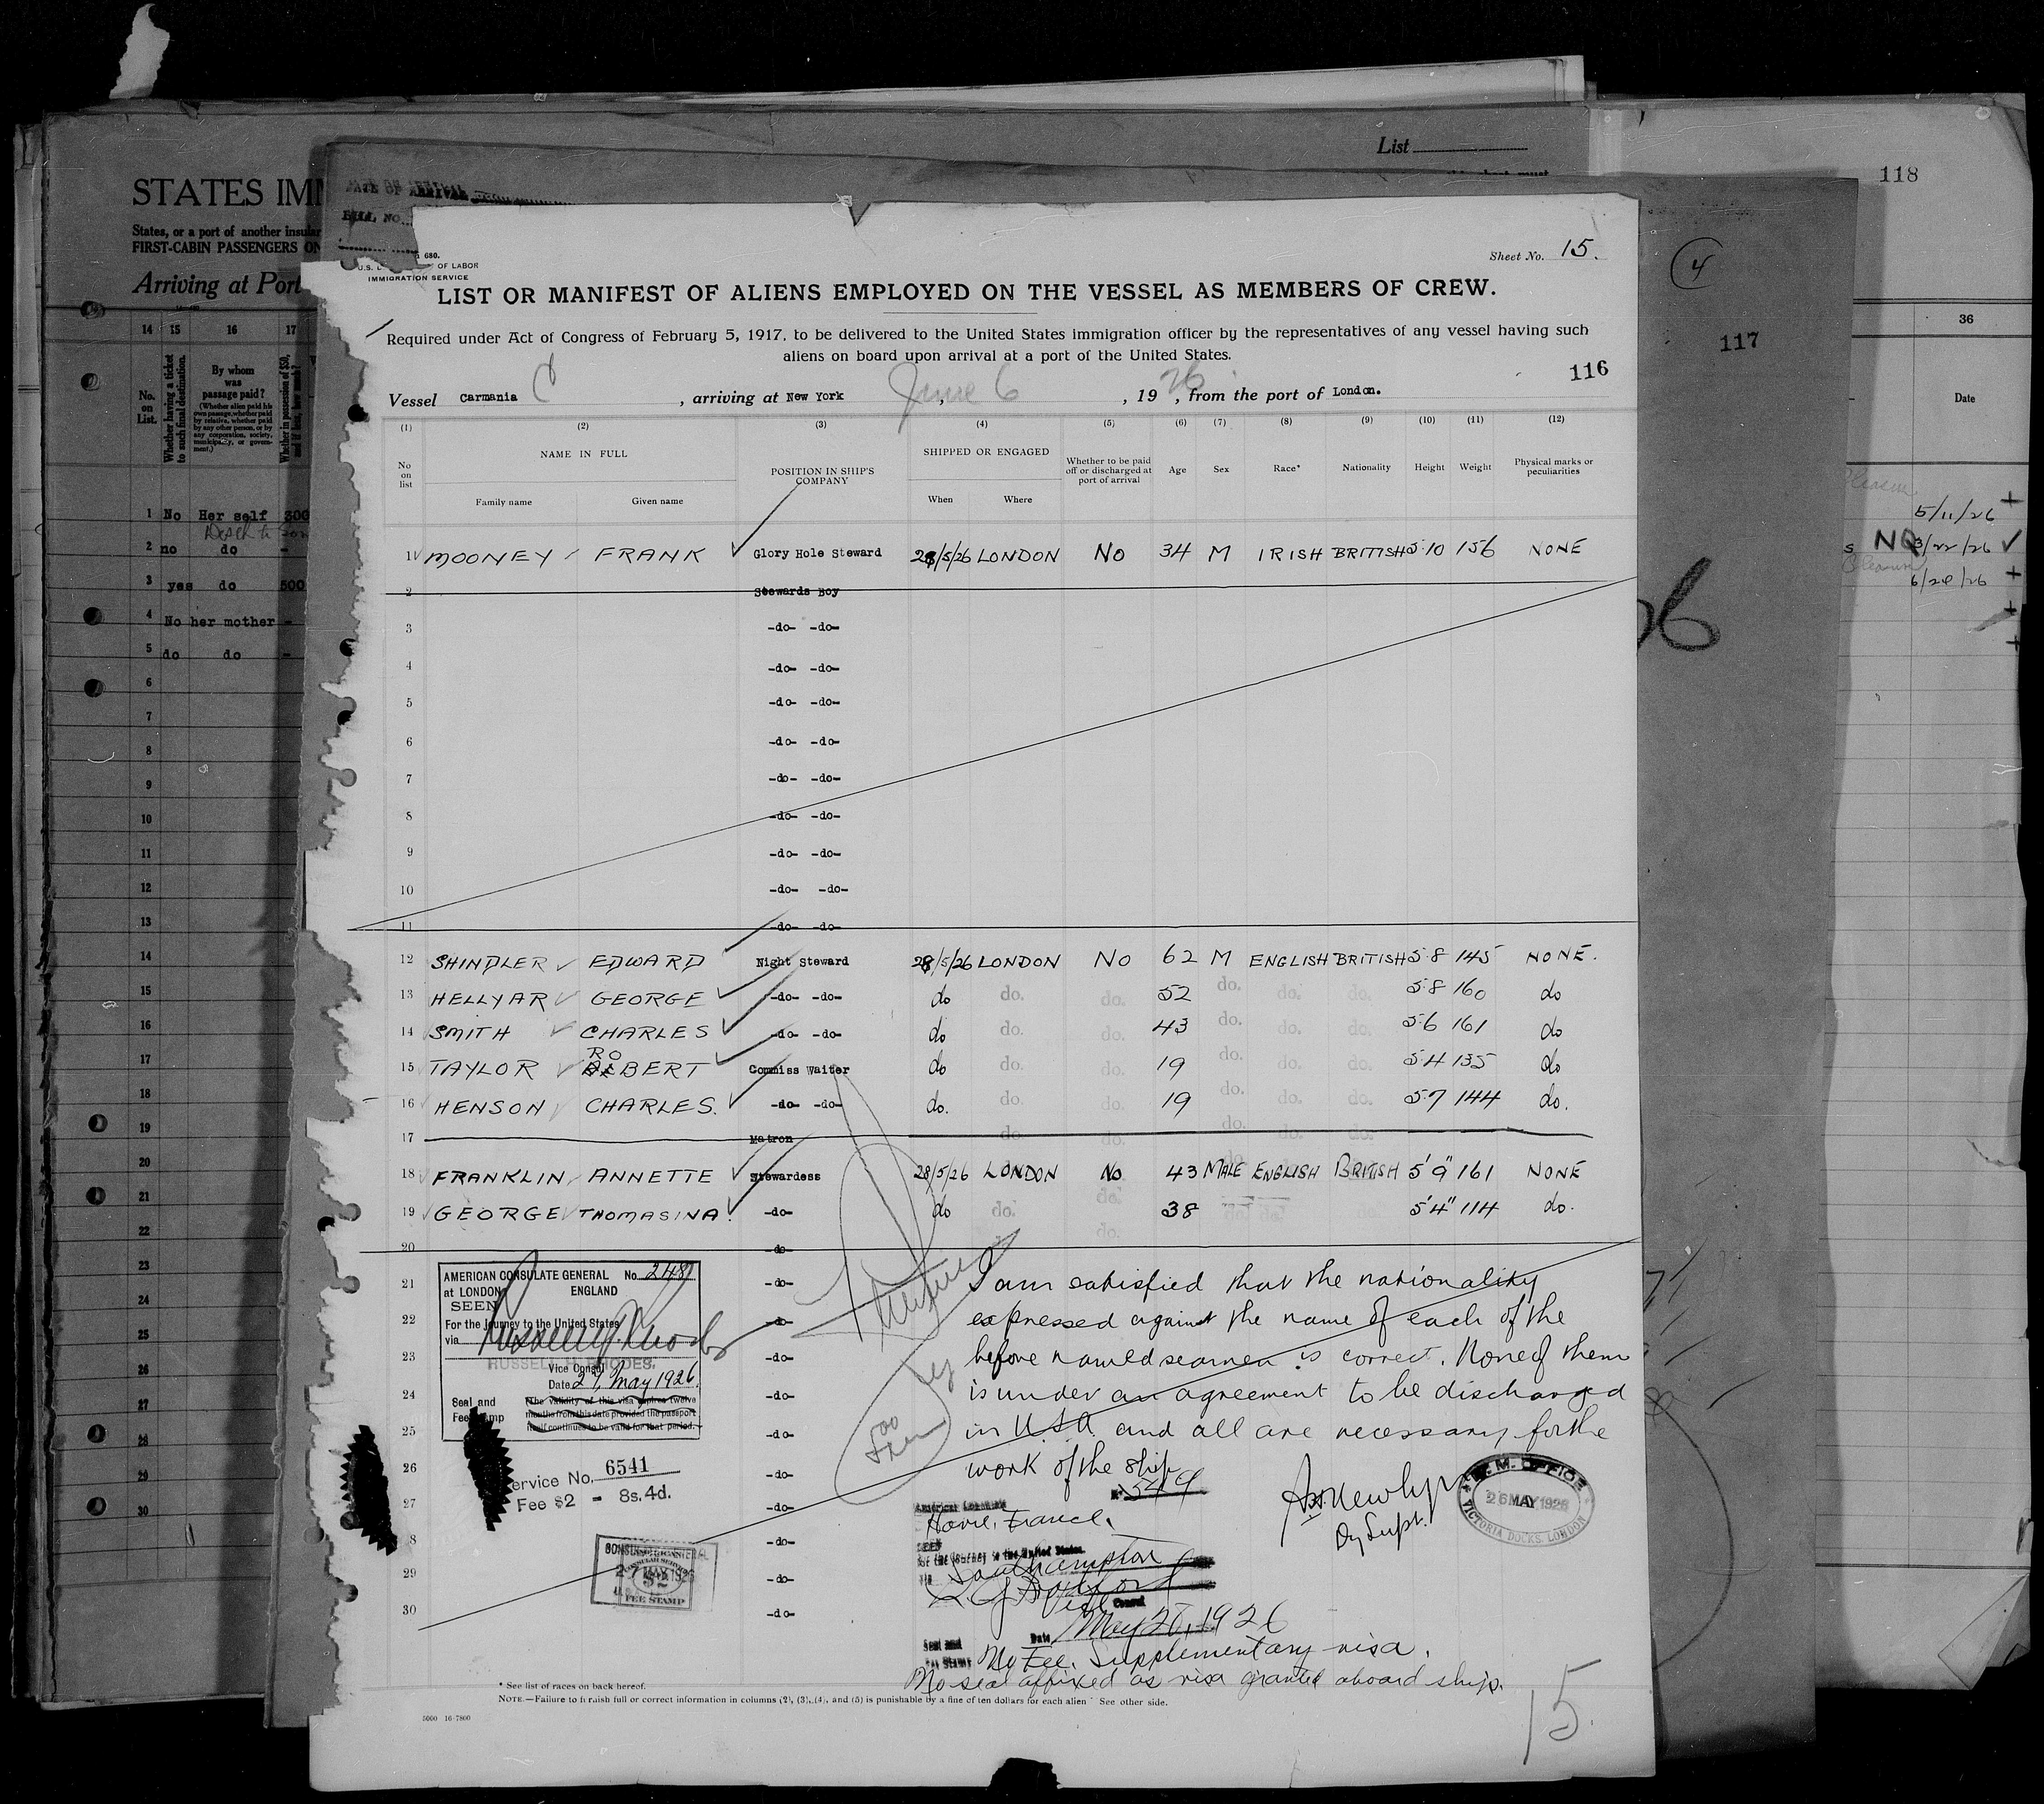 List
118
117
4
STATES IM
States, or a port of another insular
FIRST-CABIN PASSENGERS ON
Arriving at Port
14 15 16 17
No. on List.
Whether having a ticket to such final destination.
By whom was passage paid?
(Whether alien paid his own passage, whether paid by relative, whether paid by any other person, or by any corporation, society, municipality, or government.)
Whether in possession of $50,
1 No Her self 300
2 no do -
3 yes do 500
4 No her mother -
5 do do -
6
7
8
9
10
11
12
13
14
15
16
17
18
19
20
21
22
23
24
25
26
27
28
29
30
36
Date
5/11/26 +
NQ 3/22/26 ✓
6/28/26 +
DATE OF ARRIVAL
BILL NO.
680.
U.S. D OF LABOR
IMMIGRATION SERVICE
Sheet No. 15.
LIST OR MANIFEST OF ALIENS EMPLOYED ON THE VESSEL AS MEMBERS OF CREW.
Required under Act of Congress of February 5, 1917, to be delivered to the United States immigration officer by the representatives of any vessel having such
aliens on board upon arrival at a port of the United States.
116
Vessel Carmania C, arriving at New York June 6, 1926, from the port of London.
(1) (2) (3) (4) (5) (6) (7) (8) (9) (10) (11) (12)
No on list
NAME IN FULL
Family name Given name
POSITION IN SHIP'S COMPANY
SHIPPED OR ENGAGED
When Where
Whether to be paid off or discharged at port of arrival
Age Sex Race* Nationality Height Weight
Physical marks or peculiarities
1 MOONEY FRANK Glory Hole Steward 28/5/26 LONDON NO 34 M IRISH BRITISH 5·10 156 NONE
2 Stewards Boy
3 -do- -do-
4 -do- -do-
5 -do- -do-
6 -do- -do-
7 -do- -do-
8 -do- -do-
9 -do- -do-
10 -do- -do-
11 -do- -do-
12 SHINDLER EDWARD Night Steward 28/5/26 LONDON NO 62 M ENGLISH BRITISH 5·8 145 NONE.
13 HELLYAR GEORGE -do- -do- do do. do. 52 do. do. do. 5·8 160 do
14 SMITH CHARLES -do- -do- do do. do. 43 do. do. do. 5·6 161 do
15 TAYLOR ROBERT Commiss Waiter do do. do. 19 do. do. do. 5·4 135 do
16 HENSON CHARLES. -do- -do- do. do. do. 19 do. do. do. 5·7 144 do.
17 Matron do. do. do. do. do.
18 FRANKLIN ANNETTE Stewardess 28/5/26 LONDON No 43 MALE ENGLISH BRITISH 5'9" 161 NONE
19 GEORGE THOMASINA. -do- do do. do. 38 do. do. do. 5'4" 114 do.
20 -do- do.
21 -do-
22 -do-
23 -do-
24 -do-
25 -do-
26 -do-
27 -do-
8 -do-
29 -do-
30 -do-
AMERICAN CONSULATE GENERAL No. 2489
at LONDON ENGLAND
SEEN
For the Journey to the United States
via
RUSSELL H. RHODES.
Vice Consul
Date 27, May 1926.
Seal and
Fee Stamp
(The validity of this visa expires twelve
months from this date provided the passport
itself continues to be valid for that period.
ervice No. 6541
Fee $2 = 8s. 4d.
CONSULAR SERVICE
27 MAY 1926
$2
FEE STAMP
I am satisfied that the nationality
expressed against the name of each of the
before named seamen is correct. None of them
is under an agreement to be discharged
in U.S.A. and all are necessary for the
work of the ship.
Dy Supt.
M.M. OFFICE
26 MAY 1926
VICTORIA DOCKS, LONDON
American Consulate
Havre, France.
SEEN
for the journey to the United States
via Southampton
Vice Consul
Date May 28, 1926
Seal and
Fee Stamp No Fee. Supplementary visa.
No seal affixed as visa granted aboard ship.
* See list of races on back hereof.
NOTE.—Failure to furnish full or correct information in columns (2), (3), (4), and (5) is punishable by a fine of ten dollars for each alien See other side.
5000 16-7800
15